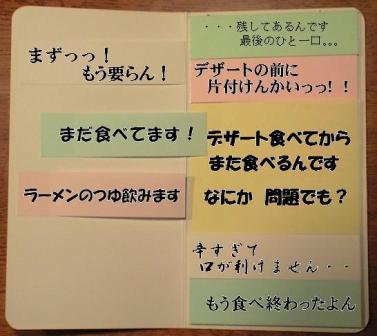 まずっっ！
もう要らん！
まだ食べてます！
ラーメンのつゆ飲みます
・・・残してあるんです
最後のひと一口。。。
デザートの前に
片付けんかいっっ！！
デザート食べてから
また食べるんです
なにか　問題でも？
辛すぎて
口が利けません・・
もう食べ終わったよん